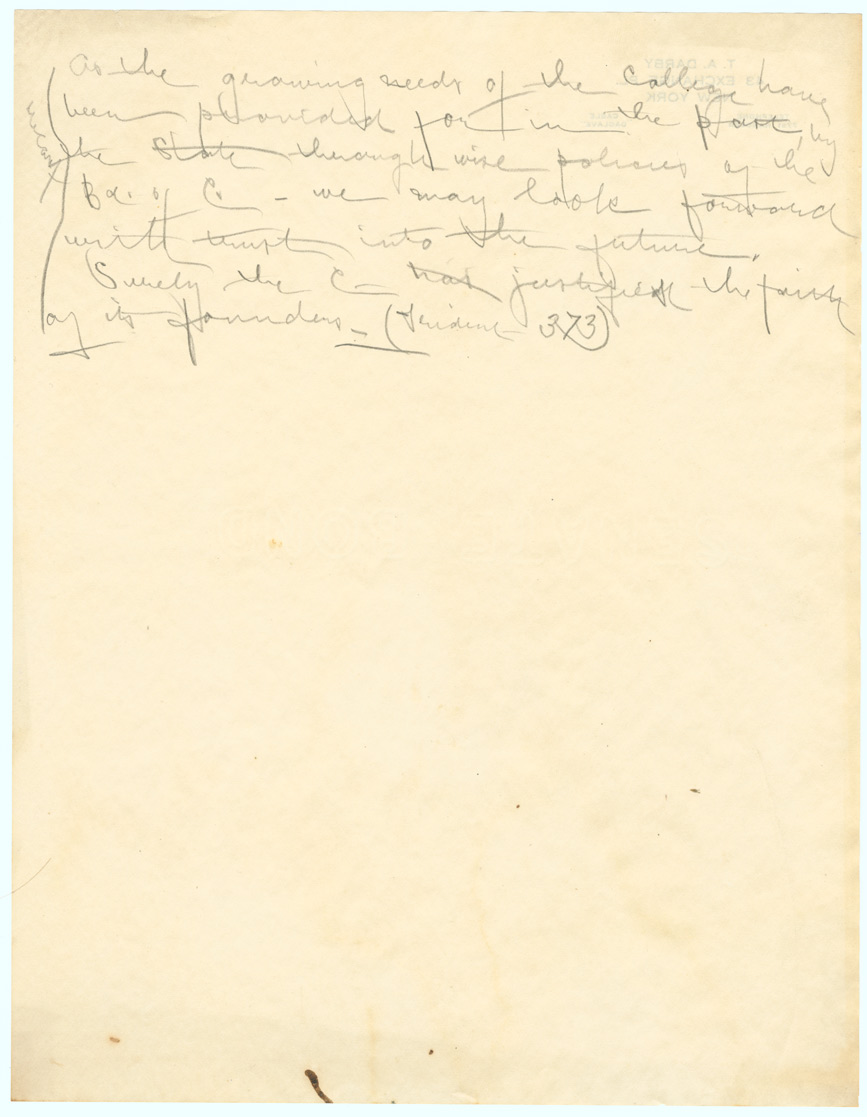 As the growing needs of the College have
been provided for in the past, by
the State through wise policies of the
Bd. of C. - we may look forward
with trust into the future.
Surely the C - has justified the faith
of its founders - (Trident - 373)
T. A. DARBY
43 EXCHANGE PL.
NEW YORK